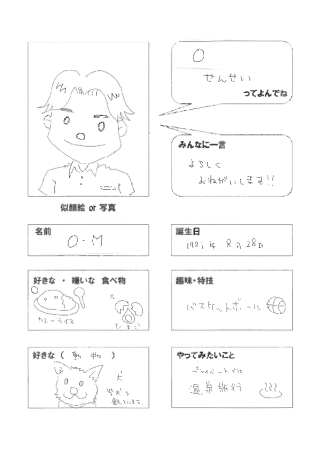 O
せんせい
ってよんでね
みんなに一言
よろしく
おねがいします!!
似顔絵 or 写真
名前
O・M
誕生日
1981年 8月28日
好きな ・ 嫌いな 食べ物
カレーライス
たまご
趣味・特技
バスケットボール
好きな ( 動物 )
犬
柴犬を
飼ってます。
やってみたいこと
プライベートで
温泉旅行